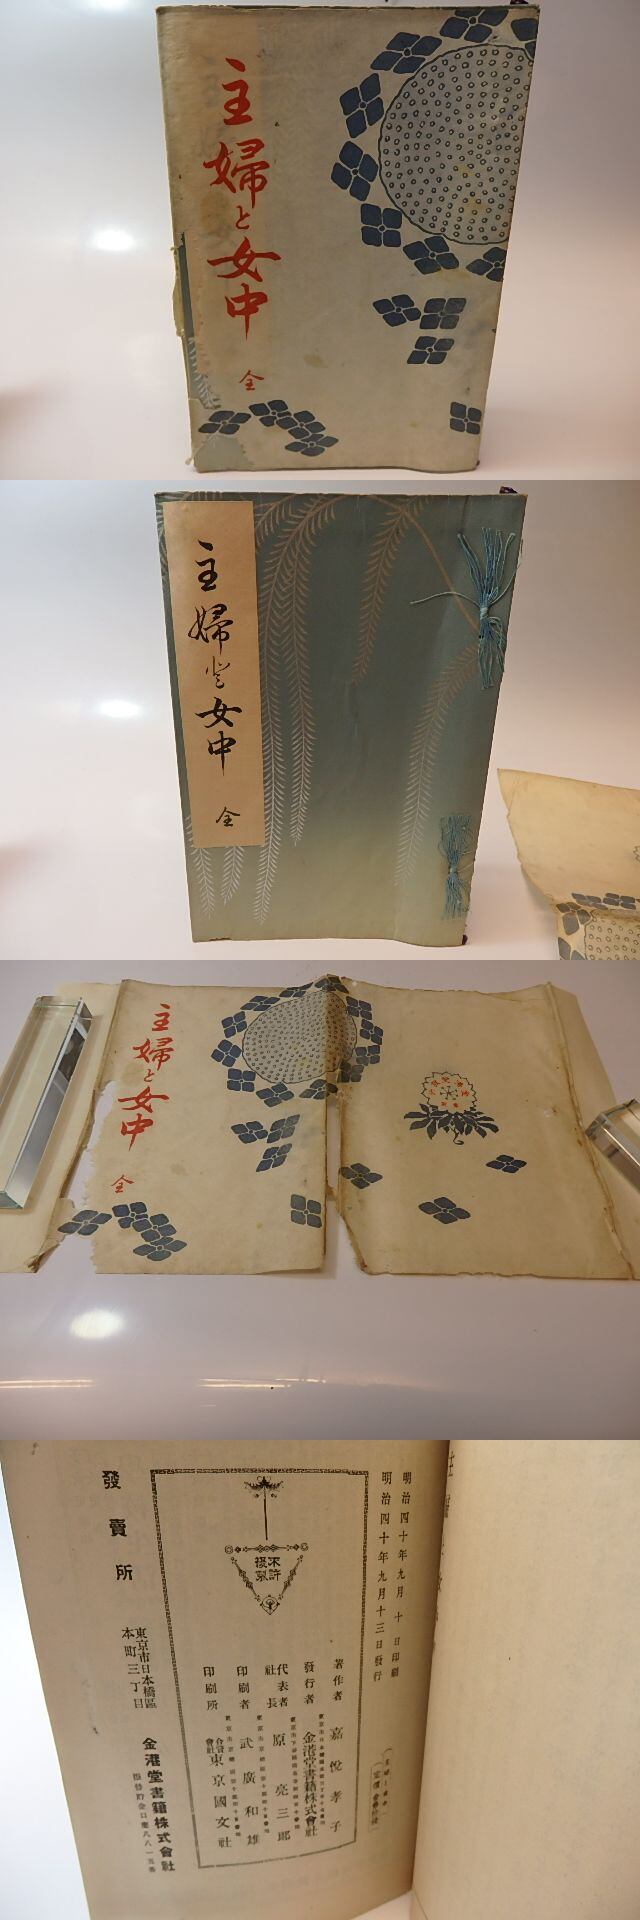 主婦と女中
全
主婦と女中
全
主婦と女中
全
明治四十年九月十日印刷
明治四十年九月十三日發行
不許
複製
著作者 嘉悅孝子
發行者 金港堂書籍株式會社
代表者
社長 原亮三郎
印刷者 武廣和雄
印刷所 合資會社 東京國文社
發賣所
東京市日本橋區
本町三丁目
金港堂書籍株式會社